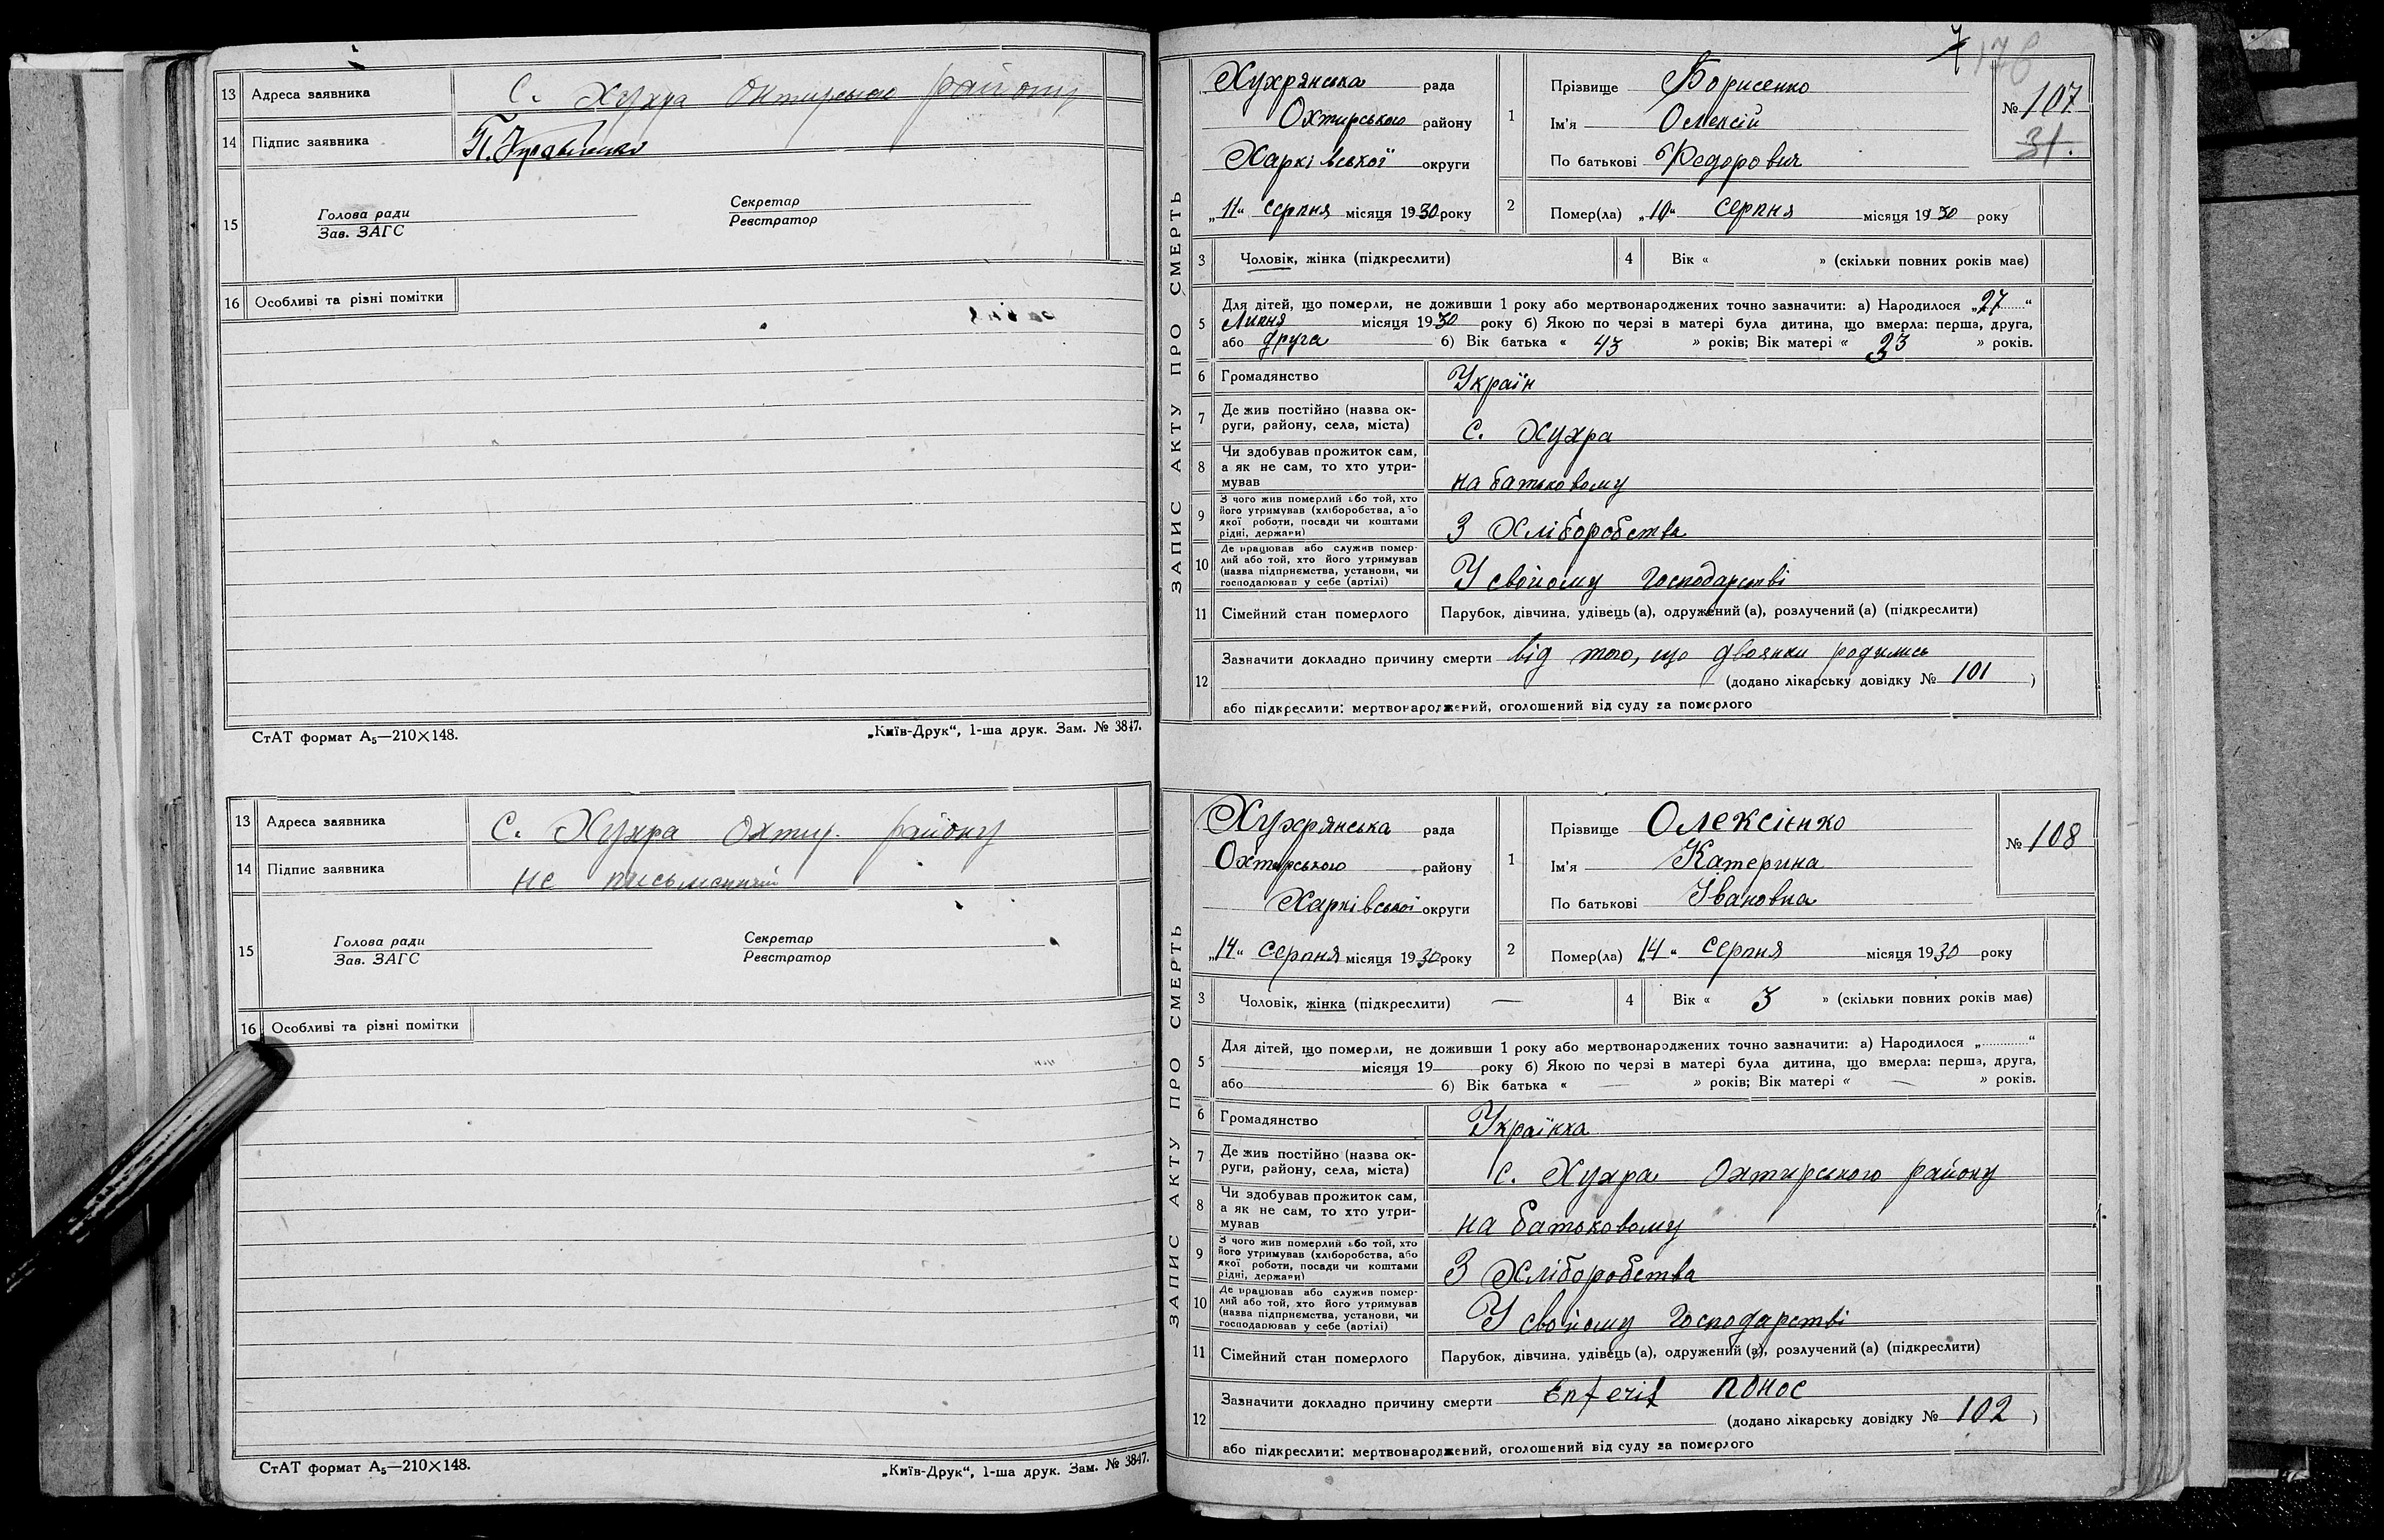 13 Адреса заявника С. Хухра Охтирського району
14 Підпис заявника П.
15 Голова ради Секретар
Зав. ЗАГС Реєстратор
16 Особливі та різні помітки
СтАТ формат А₅—210×148. „Київ-Друк“, 1-ша друк. Зам. № 3847.
13 Адреса заявника С. Хухра Охтир. району
14 Підпис заявника не письменний
15 Голова ради Секретар
Зав. ЗАГС Реєстратор
16 Особливі та різні помітки
СтАТ формат А₅—210×148. „Київ-Друк“, 1-ша друк. Зам. № 3847.
176
ЗАПИС АКТУ ПРО СМЕРТЬ
Хухрянська рада
Охтирського району
Харківської округи
„11“ серпня місяця 1930 року
1 Прізвище Борисенко
Ім'я Олексій
По батькові Федорович
№ 107
31.
2 Помер(ла) „10“ серпня місяця 1930 року
3 Чоловік, жінка (підкреслити) 4 Вік « » (скільки повних років має)
5 Для дітей, що померли, не доживши 1 року або мертвонароджених точно зазначити: а) Народилося „27“
Липня місяця 1930 року б) Якою по черзі в матері була дитина, що вмерла: перша, друга,
або друга б) Вік батька « 43 » років; Вік матері « 33 » років.
6 Громадянство Україн
7 Де жив постійно (назва округи, району, села, міста) с. Хухра
8 Чи здобував прожиток сам, а як не сам, то хто утримував на батьковому
9 З чого жив померлий або той, хто його утримував (хліборобства, або якої роботи, посади чи коштами рідні, держави) З Хліборобства
10 Де працював або служив помер-
лий або той, хто його утримував
(назва підприємства, установи, чи
господарював у себе (артілі) У свойому господарстві
11 Сімейний стан померлого Парубок, дівчина, удівець (а), одружений (а), розлучений (а) (підкреслити)
12 Зазначити докладно причину смерти від того, що двоянки родились
(додано лікарську довідку № 101 )
або підкреслити: мертвонароджений, оголошений від суду за померлого
ЗАПИС АКТУ ПРО СМЕРТЬ
Хухрянська рада
Охтирського району
Харківської округи
„14“ серпня місяця 1930 року
1 Прізвище Олексієнко
Ім'я Катерина
По батькові Івановна
№ 108
2 Помер(ла) „14“ серпня місяця 1930 року
3 Чоловік, жінка (підкреслити) — 4 Вік « 3 » (скільки повних років має)
5 Для дітей, що померли, не доживши 1 року або мертвонароджених точно зазначити: а) Народилося „ “
місяця 19 року б) Якою по черзі в матері була дитина, що вмерла: перша, друга,
або б) Вік батька « — » років; Вік матері « — » років.
6 Громадянство Українка
7 Де жив постійно (назва округи, району, села, міста) с. Хухра Охтирського району
8 Чи здобував прожиток сам, а як не сам, то хто утримував на батьковому
9 З чого жив померлий або той, хто його утримував (хліборобства, або якої роботи, посади чи коштами рідні, держави) З Хліборобства
10 Де працював або служив помер-
лий або той, хто його утримував
(назва підприємства, установи, чи
господарював у себе (артілі) У свойому господарстві
11 Сімейний стан померлого Парубок, дівчина, удівець (а), одружений (а), розлучений (а) (підкреслити)
12 Зазначити докладно причину смерти Enterit понос
(додано лікарську довідку № 102 )
або підкреслити: мертвонароджений, оголошений від суду за померлого